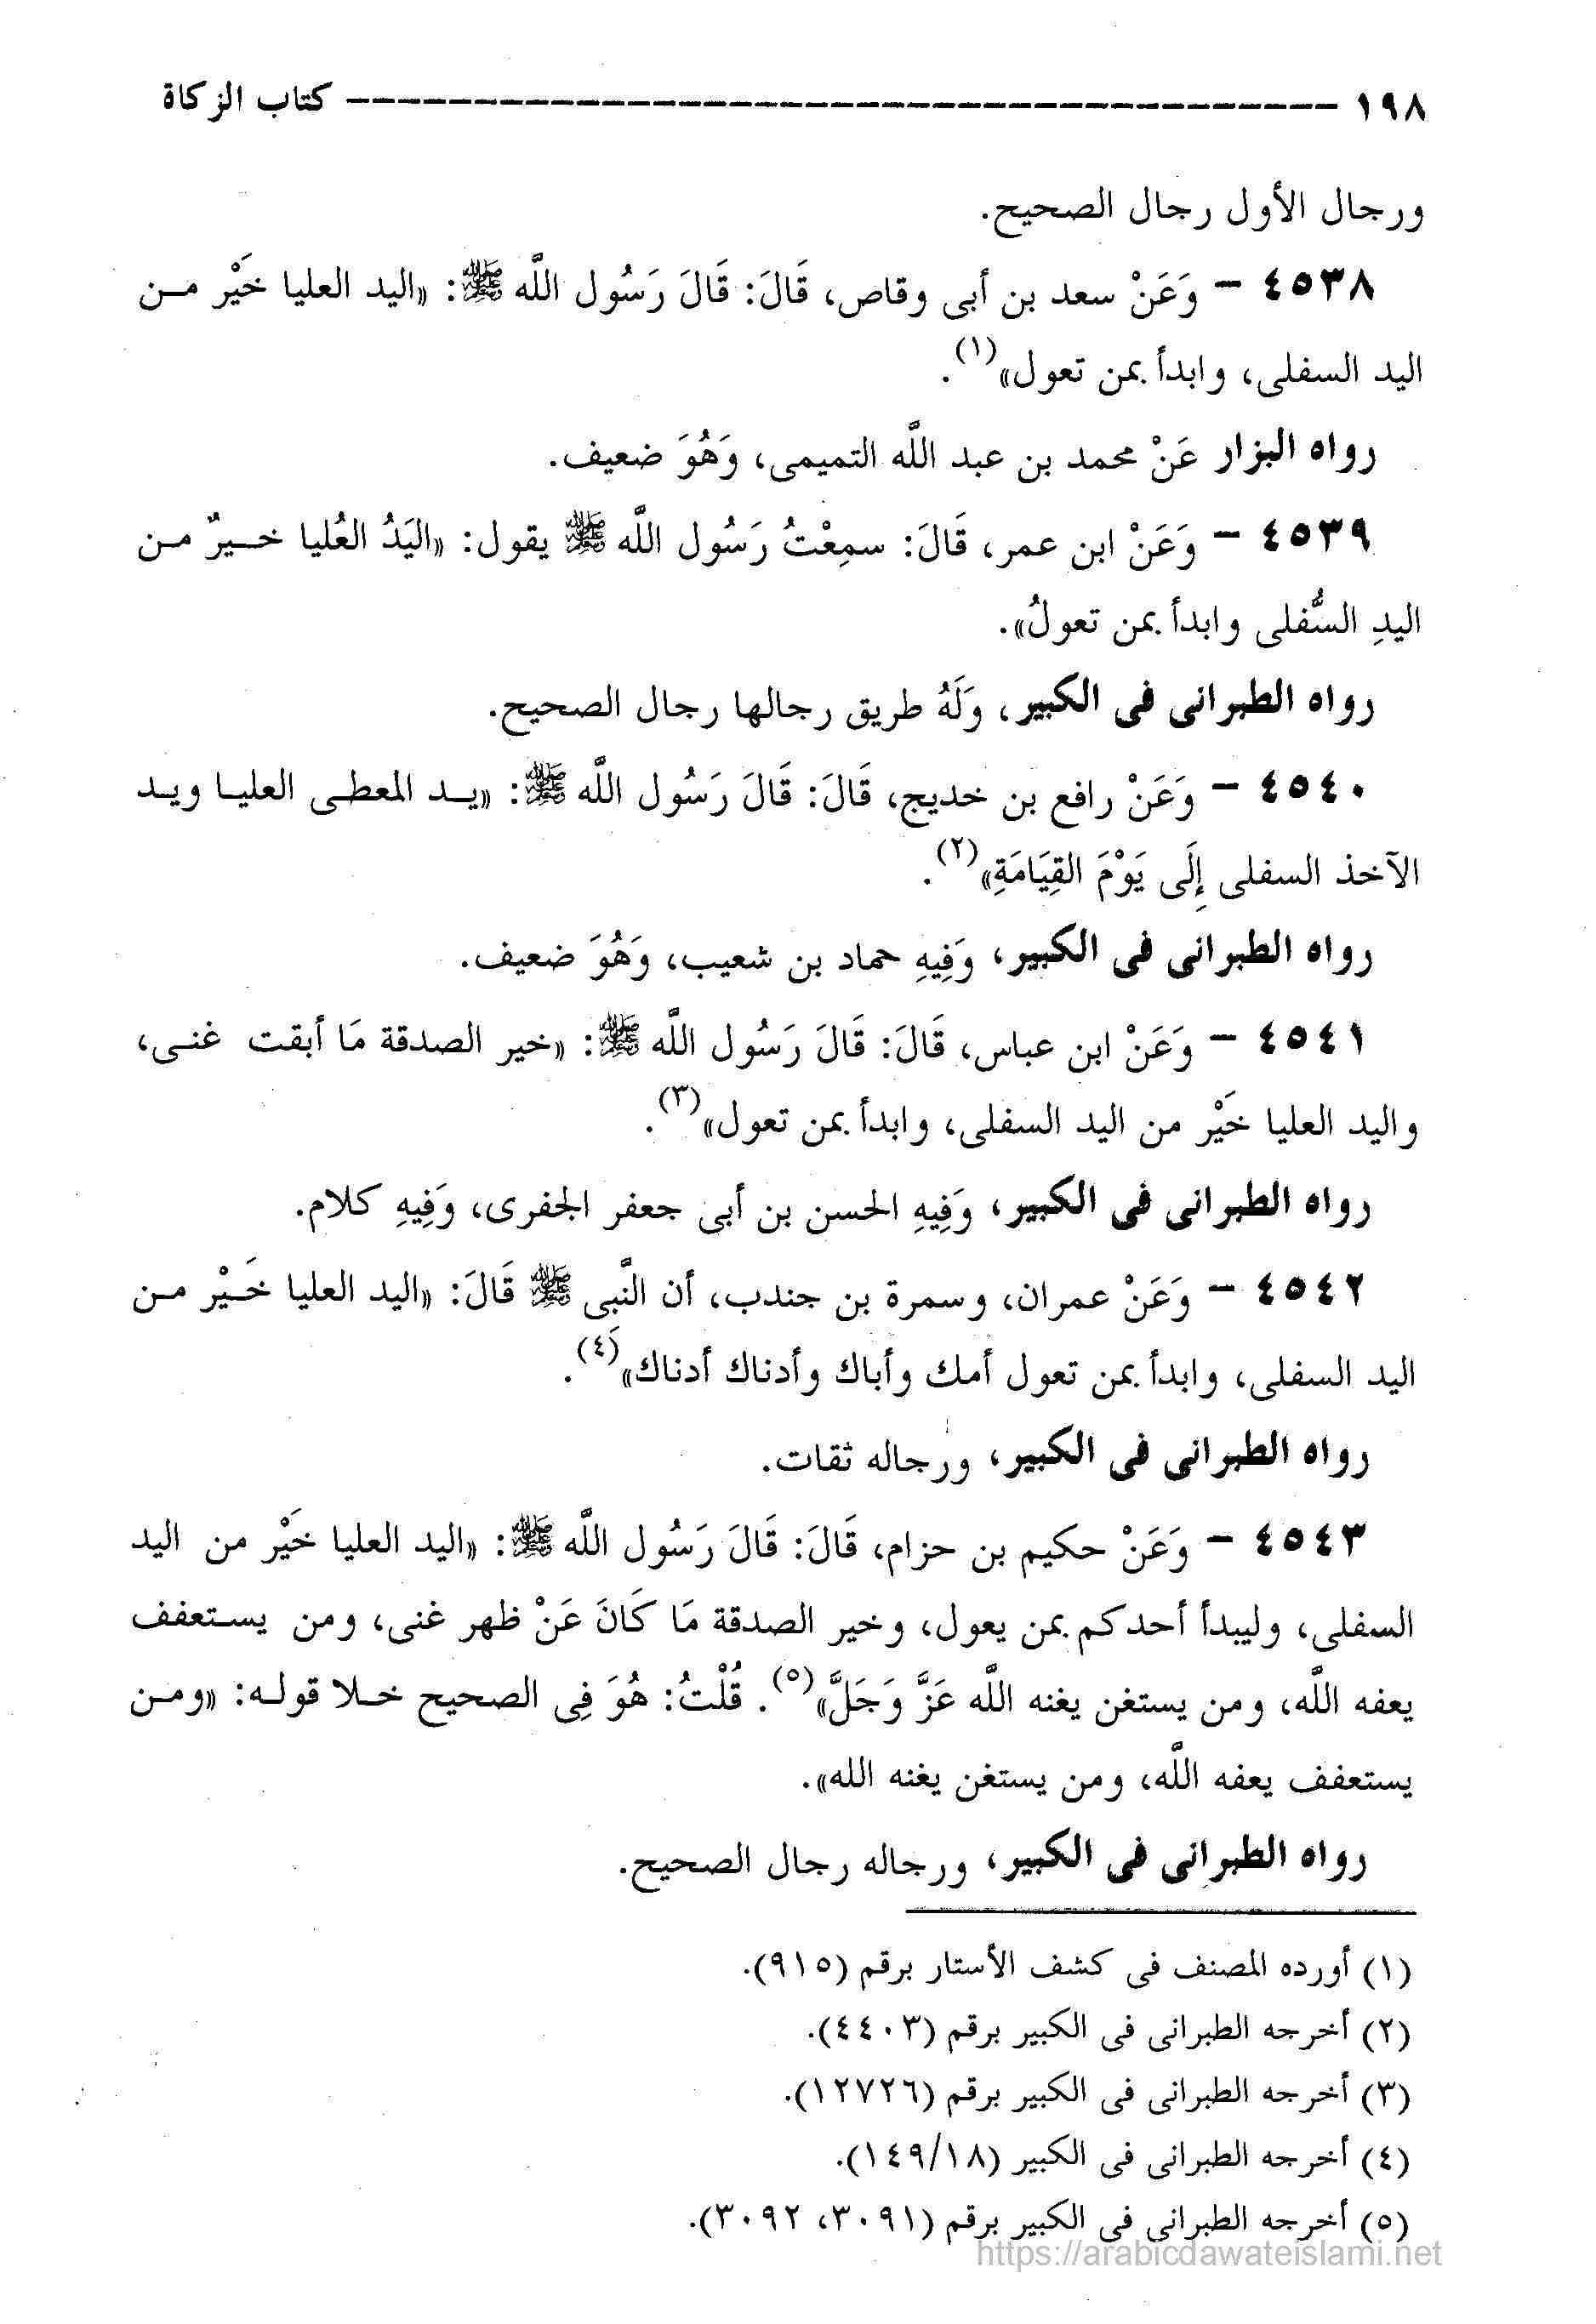 ١٩٨ ------------------------------------------ كتاب الزكاة
ورجال الأول رجال الصحيح.
٤٥٣٨ - وَعَنْ سعد بن أبى وقاص، قَالَ: قَالَ رَسُول اللَّه ﷺ: «اليد العليا خَيْر مـن
اليد السفلى، وابدأ بمن تعول»(١).
رواه البزار عَنْ محمد بن عبد اللَّه التميمى، وَهُوَ ضعيف.
٤٥٣٩ - وَعَنْ ابن عمر، قَالَ: سمِعْتُ رَسُول اللَّه ﷺ يقول: «اليَدُ العُليا خـيرٌ مـن
اليدِ السُّفلى وابدأ بمن تعولُ».
رواه الطبرانى فى الكبير، وَلَهُ طريق رجالها رجال الصحيح.
٤٥٤٠ - وَعَنْ رافع بن خديج، قَالَ: قَالَ رَسُول اللَّه ﷺ: «يـد المعطى العليـا ويـد
الآخذ السفلى إِلَى يَوْمَ القِيَامَةِ»(٢).
رواه الطبرانى فى الكبير، وَفِيهِ حماد بن شعيب، وَهُوَ ضعيف.
٤٥٤١ - وَعَنْ ابن عباس، قَالَ: قَالَ رَسُول اللَّه ﷺ: «خير الصدقة مَا أبقت غنـى،
واليد العليا خَيْر من اليد السفلى، وابدأ بمن تعول»(٣).
رواه الطبرانى فى الكبير، وَفِيهِ الحسن بن أبى جعفر الجفرى، وَفِيهِ كلام.
٤٥٤٢ - وَعَنْ عمران، وسمرة بن جندب، أن النَّبى ﷺ قَالَ: «اليد العليا خَـيْر مـن
اليد السفلى، وابدأ بمن تعول أمك وأباك وأدناك أدناك»(٤).
رواه الطبرانى فى الكبير، ورجاله ثقات.
٤٥٤٣ - وَعَنْ حكيم بن حزام، قَالَ: قَالَ رَسُول اللَّه ﷺ: «اليد العليا خَيْر من اليد
السفلى، وليبدأ أحدكم بمن يعول، وخير الصدقة مَا كَانَ عَنْ ظهر غنى، ومن يسـتعفف
يعفه اللَّه، ومن يستغن يغنه اللَّه عَزَّ وَجَلَّ»(٥). قُلْتُ: هُوَ فِى الصحيح خـلا قولـه: «ومـن
يستعفف يعفه اللَّه، ومن يستغن يغنه الله».
رواه الطبرانى فى الكبير، ورجاله رجال الصحيح.
(١) أورده المصنف فى كشف الأستار برقم (٩١٥).
(٢) أخرجه الطبرانى فى الكبير برقم (٤٤٠٣).
(٣) أخرجه الطبرانى فى الكبير برقم (١٢٧٢٦).
(٤) أخرجه الطبرانى فى الكبير (١٤٩/١٨).
(٥) أخرجه الطبرانى فى الكبير برقم (٣٠٩١، ٣٠٩٢).
https://arabicdawateislami.net